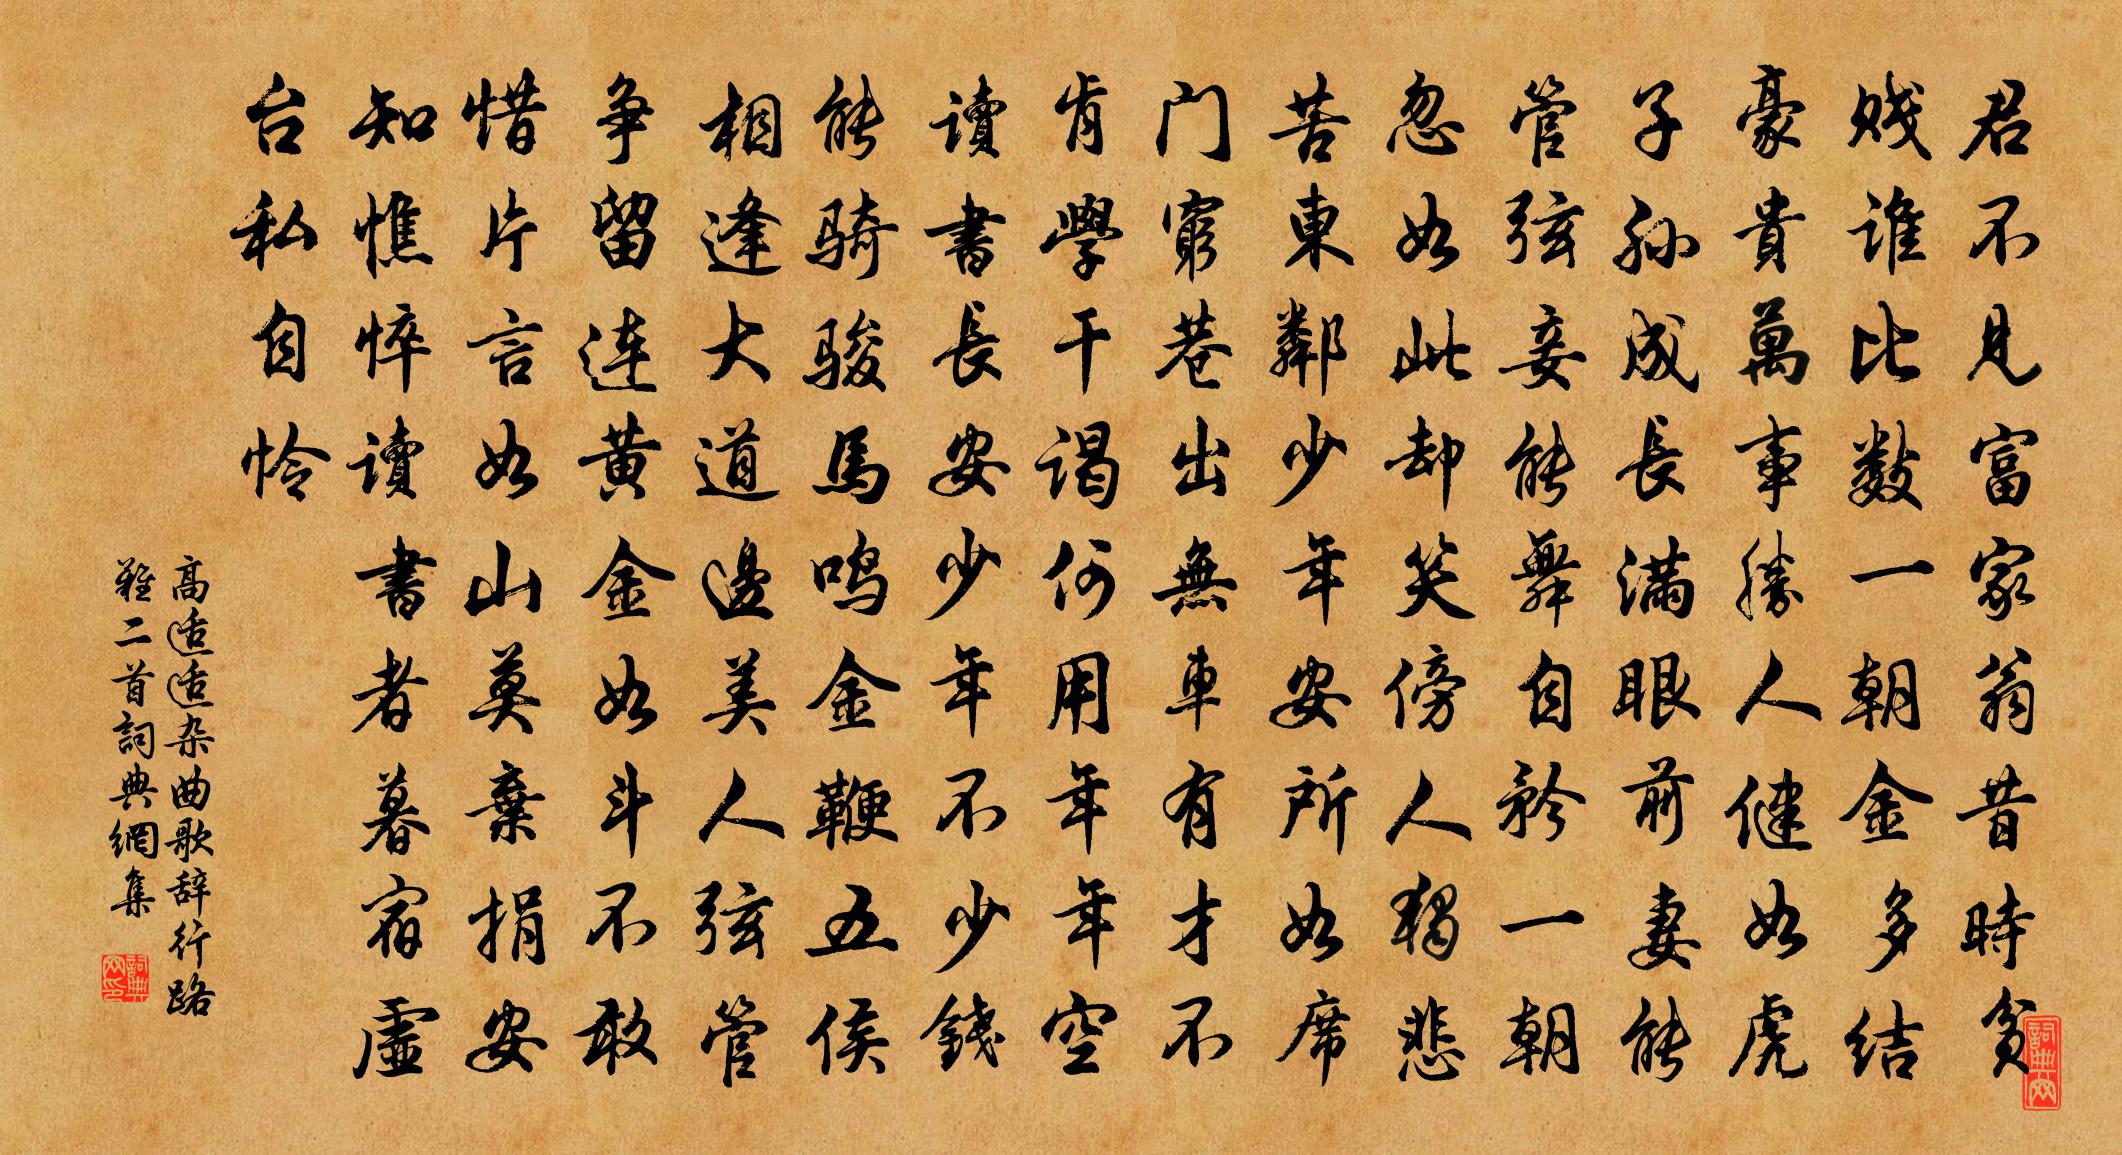 君不見富家翁昔時貧
贱谁比数一朝金多结
豪貴萬事勝人健如虎
子孙成長满眼前妻能
管弦妾能舞自矜一朝
忽如此却笑傍人獨悲
苦東鄰少年安所如席
门窮巷出無車有才不
肯學干谒何用年年空
讀書長安少年不少錢
能骑骏馬鸣金鞭五侯
相逢大道邊美人弦管
争留连黄金如斗不敢
惜片言如山莫棄捐安
知憔悴讀書者暮宿虛
台私自怜
高适适杂曲歌辞行路
難二首詞典網集
詞典网
詞典网印